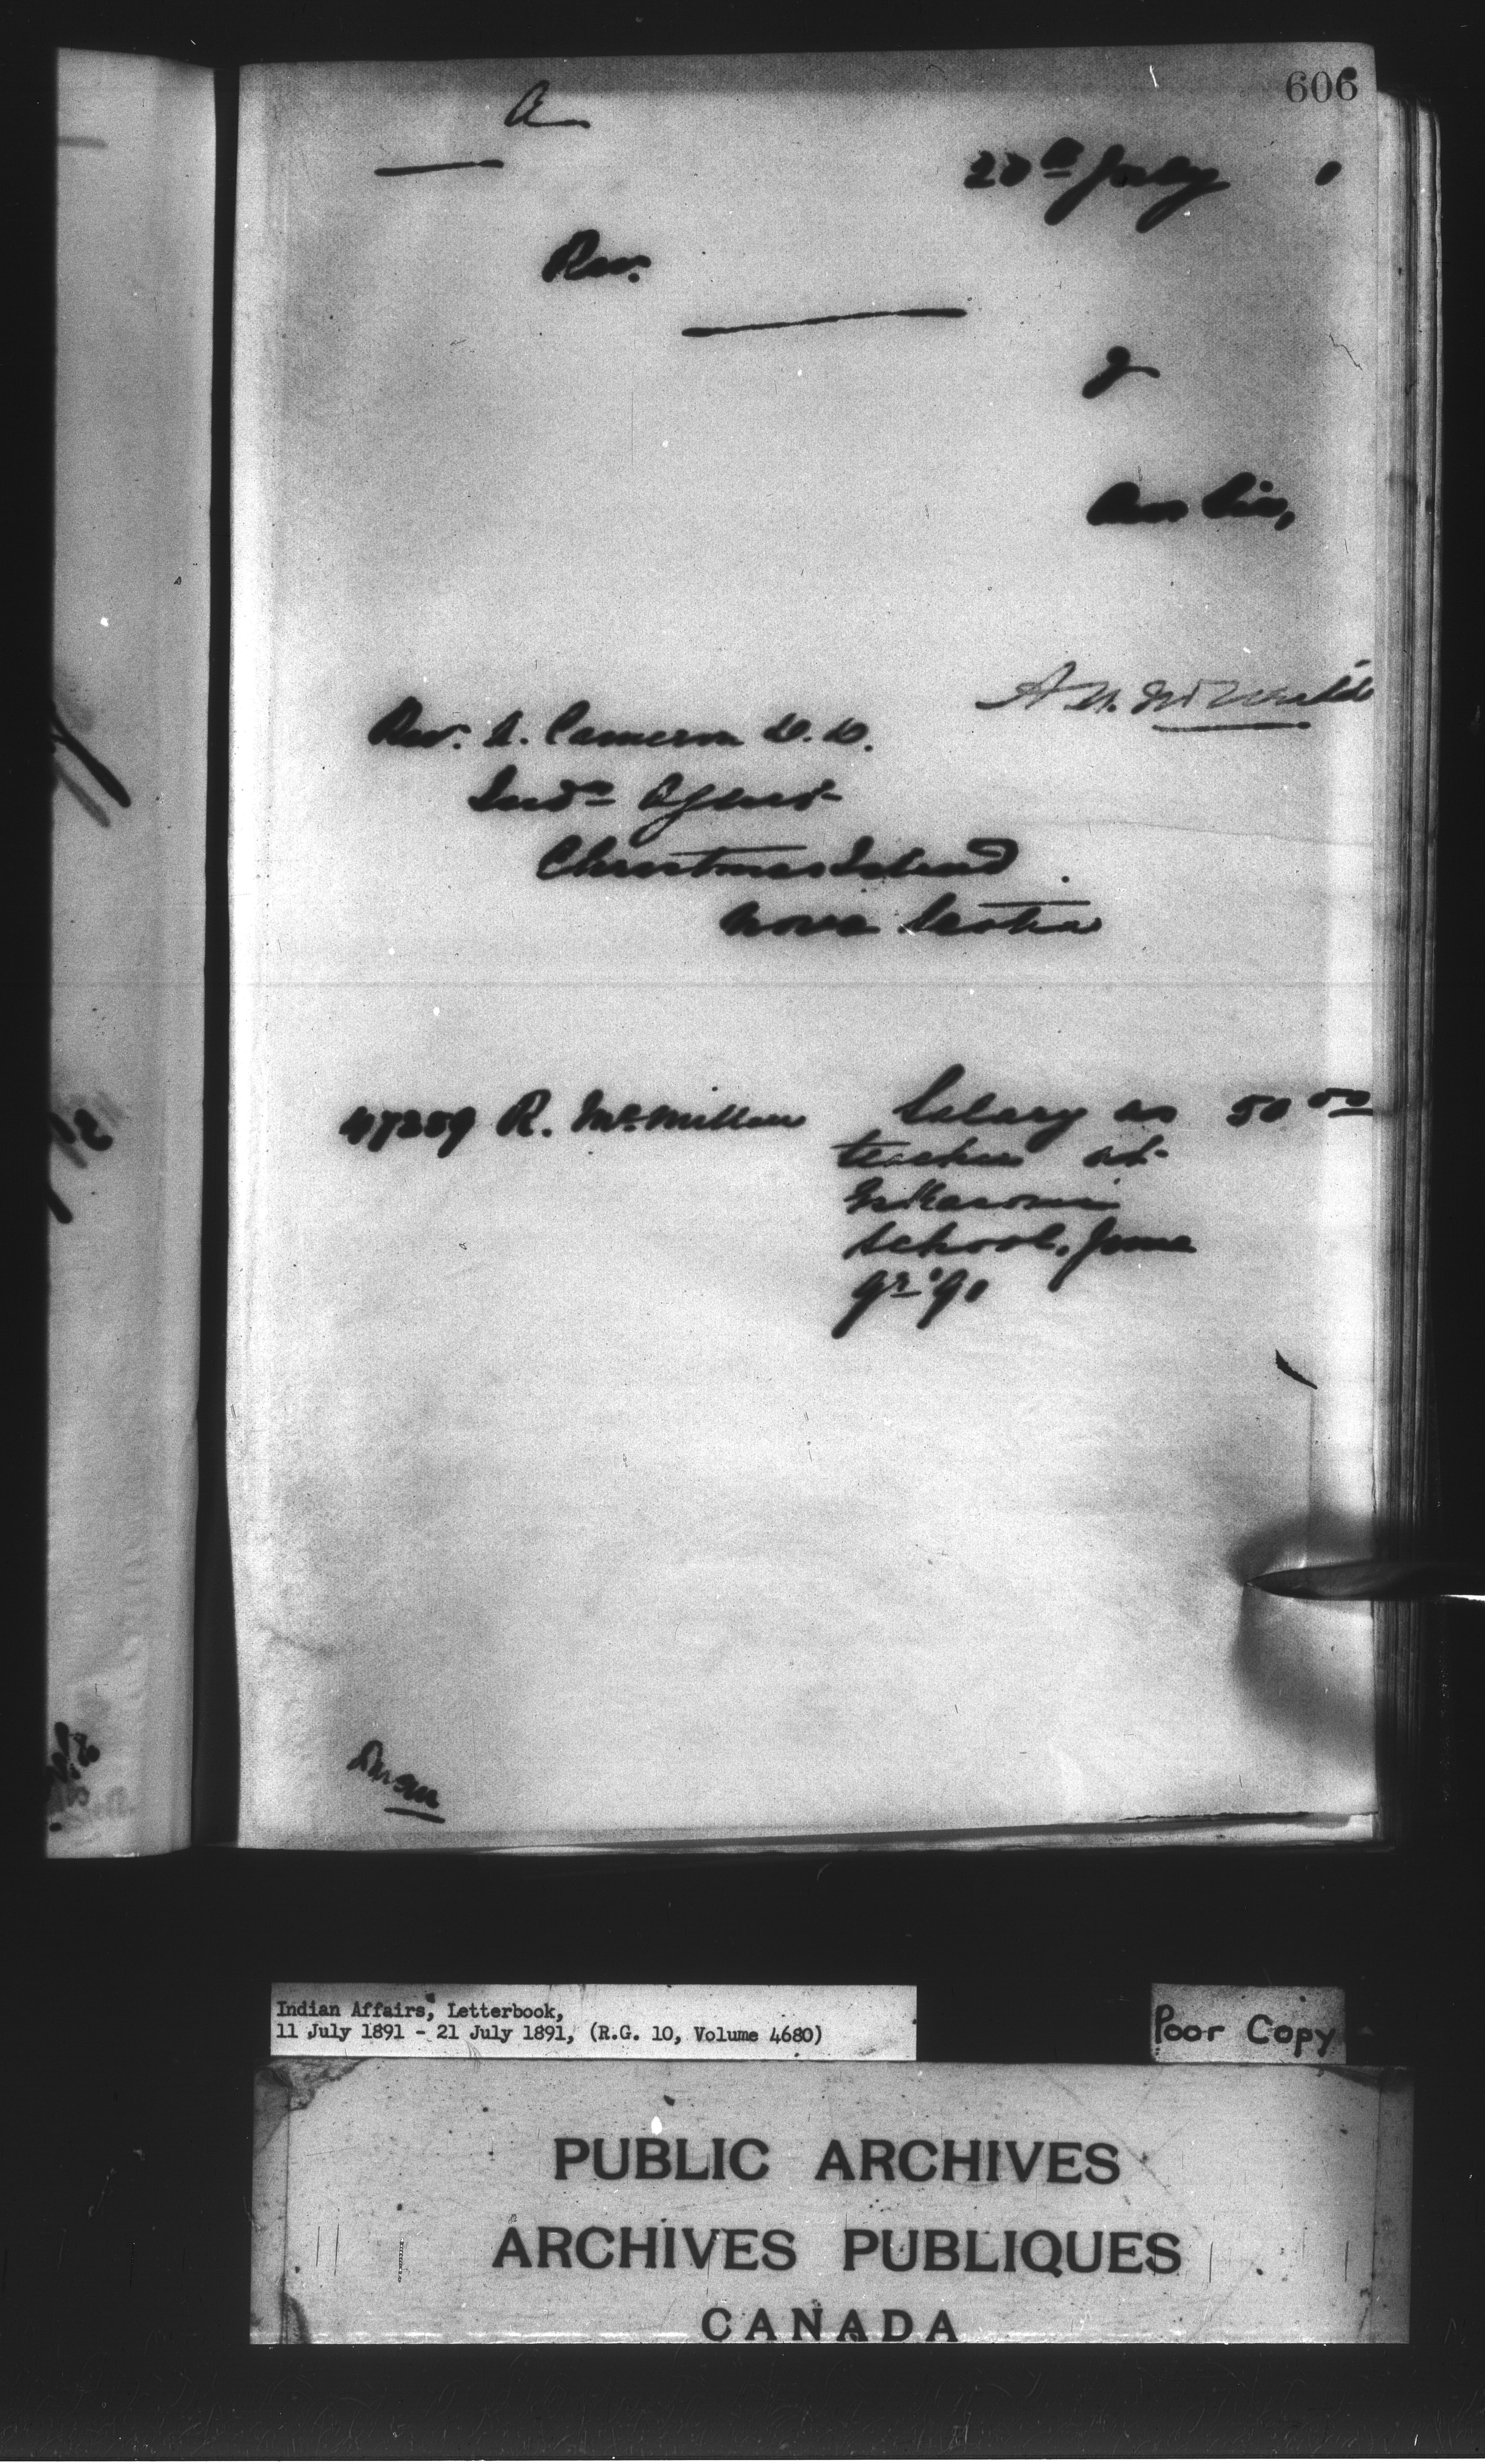 606
a
20th July 1
Rev.
2
Rev Sir,
Rev. A. Cameron D.D.
Indn Agent
Christmas Island.
Nova Scotia
47259 R. McMillan Salary as 50 00
teacher at
Eskasoni
School, June
qr '91
Indian Affairs, Letterbook,
11 July 1891 - 21 July 1891, (R.G. 10, Volume 4680)
Poor Copy
PUBLIC ARCHIVES
ARCHIVES PUBLIQUES
CANADA